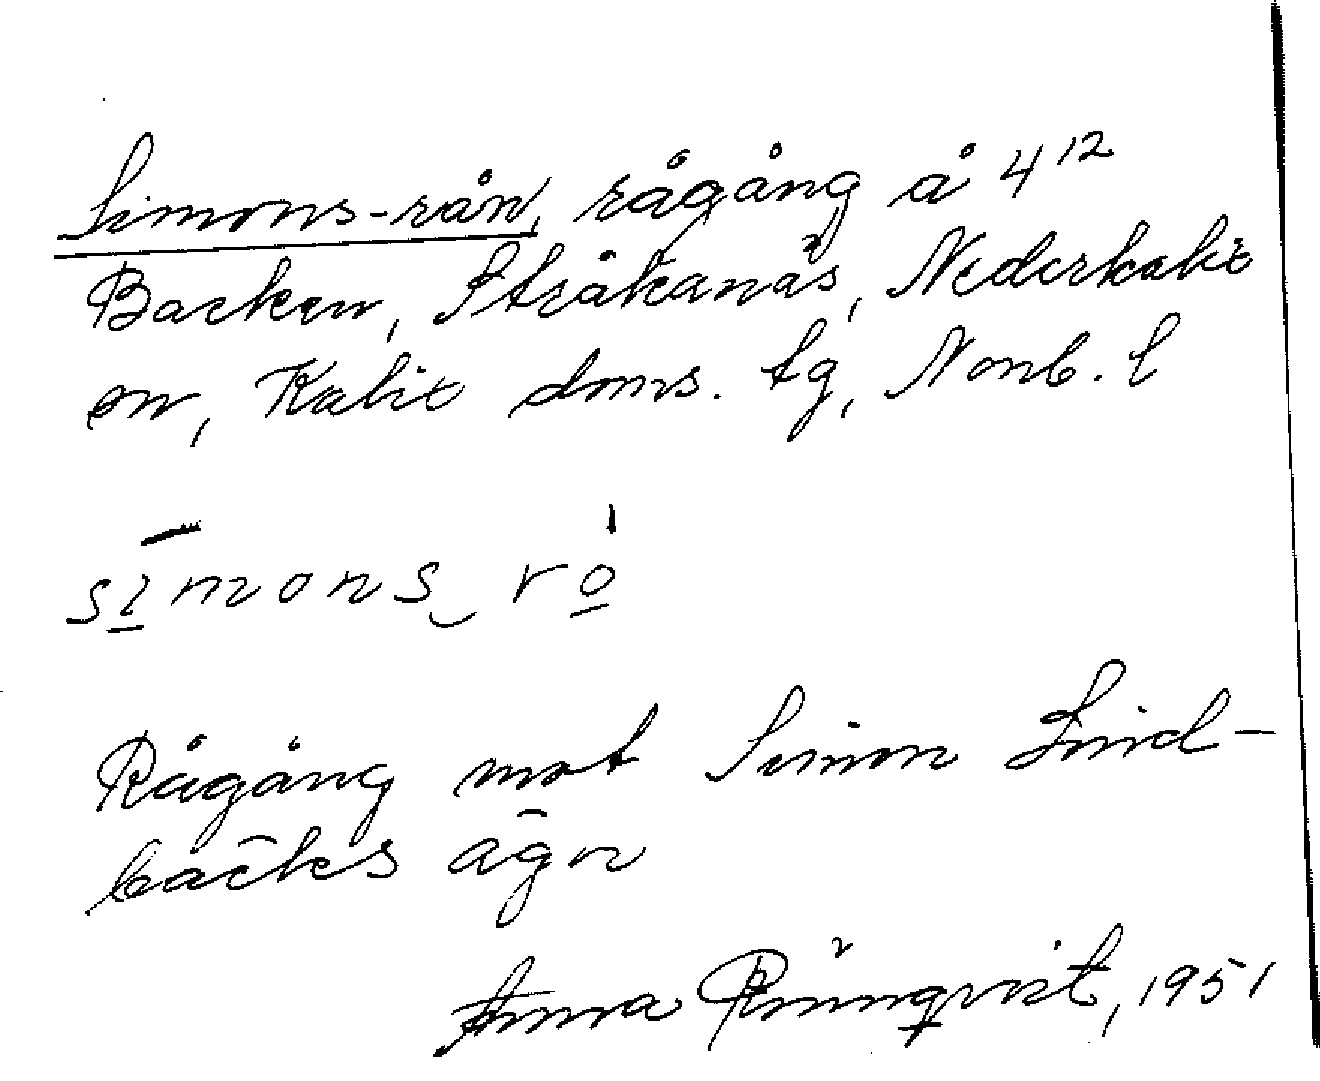 Simons-rån, rågång å 4¹²
Backen, Stråkanäs, Nederkalix
sn, Kalix doms. tg, Norrb. l
simons‿rå
Rågång mot Simon Lind-
bäcks ägor
Anna Rönnqvist, 1951